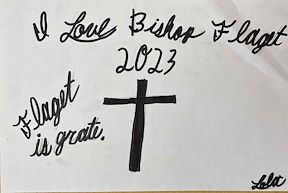 I Love Bishop Flaget
2023
Flaget
is grate.